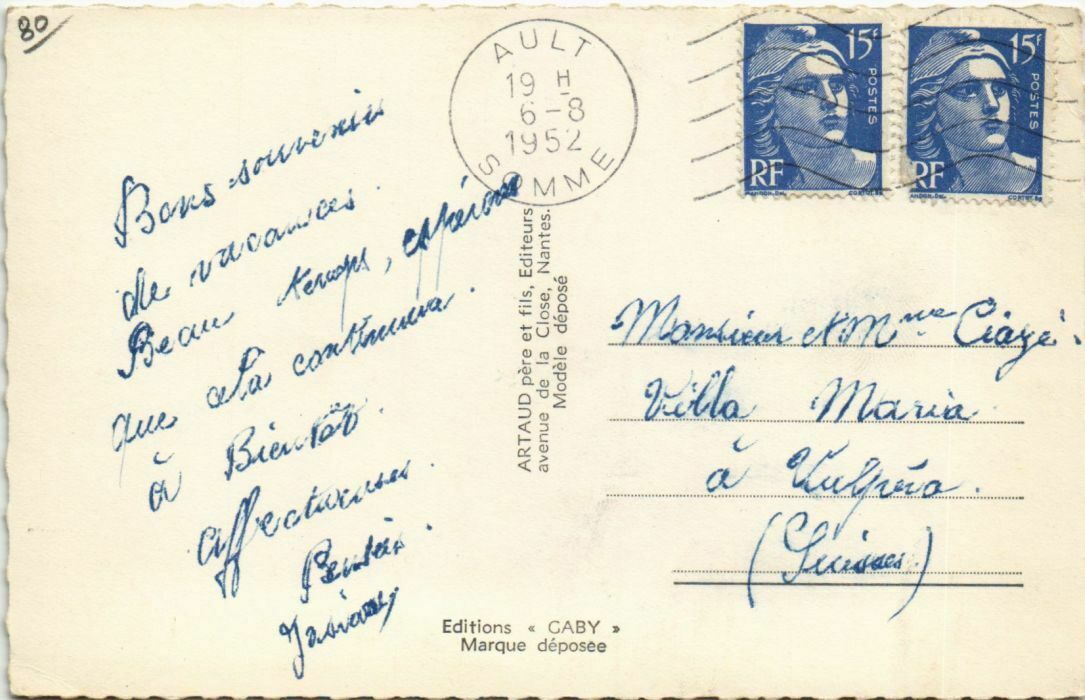 80
AULT
19 H
6-8
1952
SOMME
15F
POSTES
RF
15F
POSTES
RF
Bons souvenir
de vacances.
Beau temps, espérons
que cela continuera.
à Bientôt.
Affectueuses.
Pensées.
ARTAUD père et fils, Editeurs
avenue de la Close, Nantes.
Modèle déposé
Monsieur et Mme
Villa Maria
à
(Suisse)
Editions « GABY »
Marque déposée